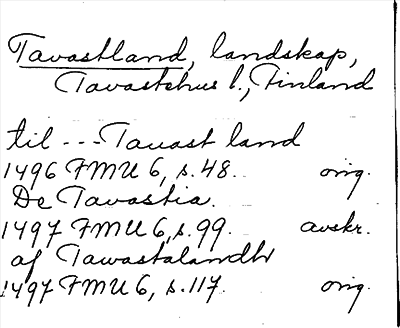 Tavastland, landskap,
Tavastehus l., Finland
til --- Tauast land
1496 FMU 6, s.48. orig.
De Tavastia.
1497 FMU 6, s.99. avskr.
af Tawastalandh
1497 FMU 6, s.117. orig.